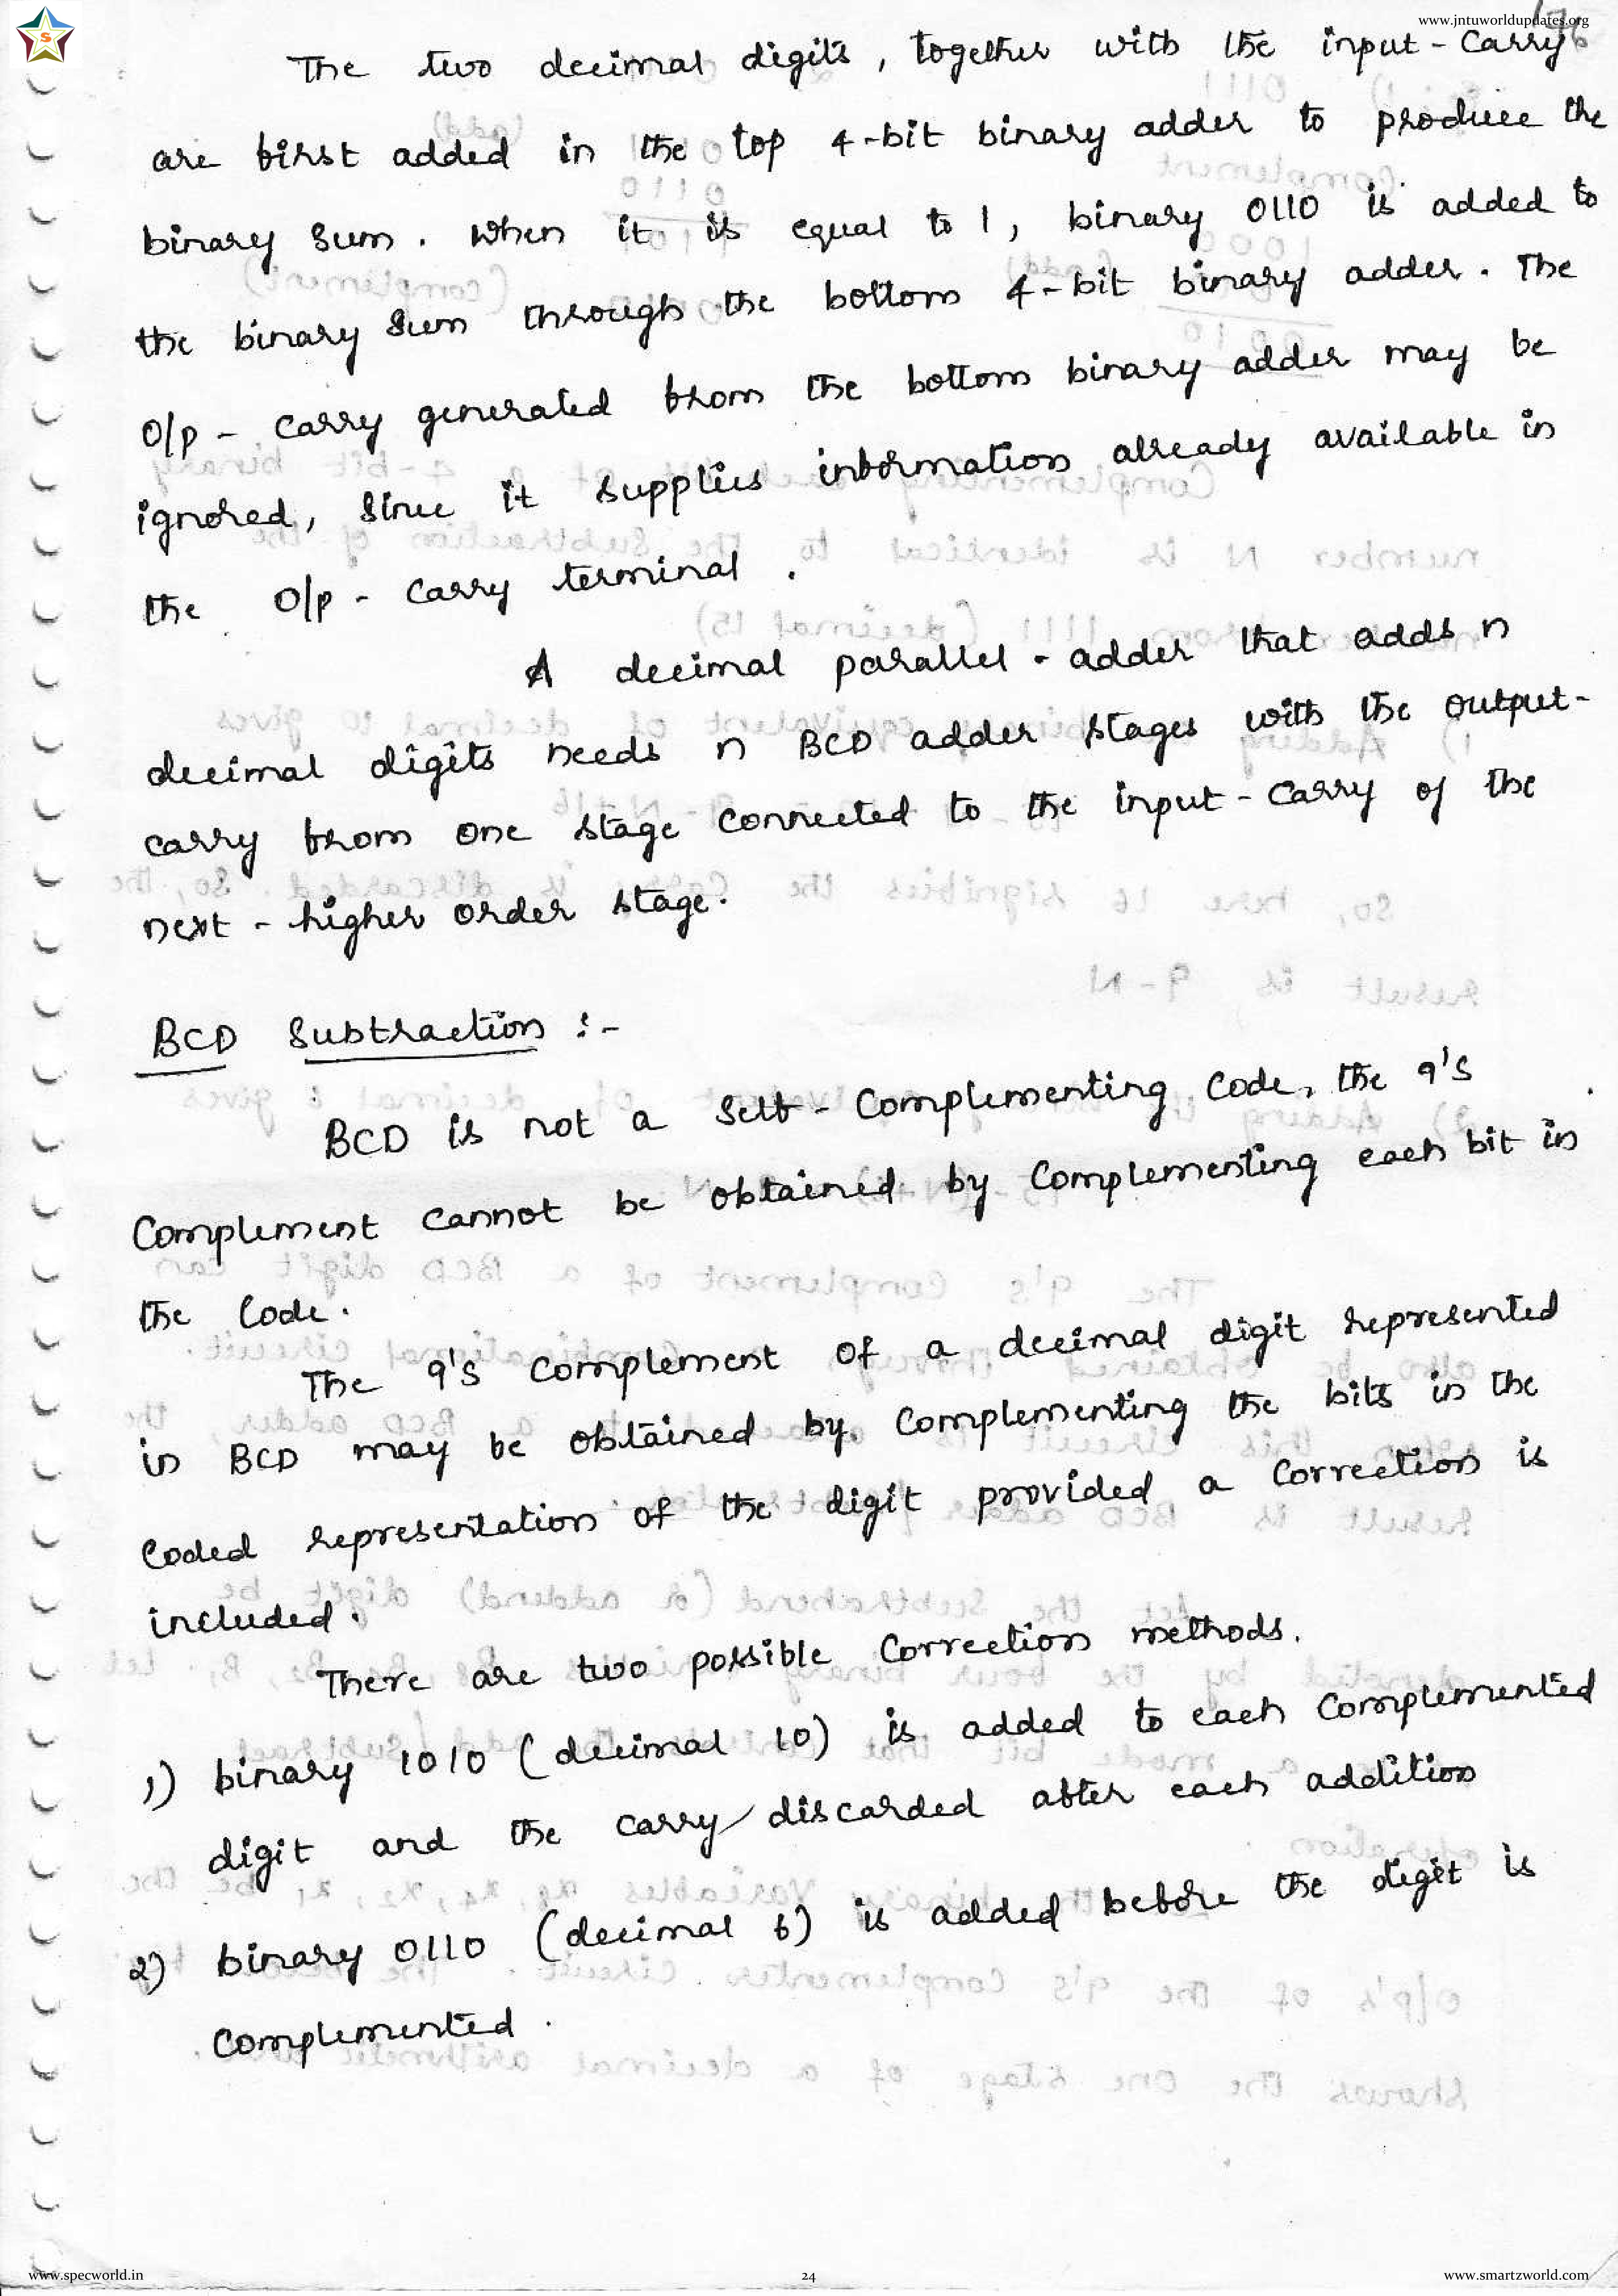 www.jntuworldupdates.org
The two decimal digits, together with the input-carry
are first added in the top 4-bit binary adder to produce the
binary sum. When it is equal to 1, binary 0110 is added to
the binary sum through the bottom 4-bit binary adder. The
O/p - carry generated from the bottom binary adder may be
ignored, since it supplies information already available in
the O/p - carry terminal.
A decimal parallel - adder that adds n
decimal digits needs n BCD adder stages with the output-
carry from one stage connected to the input-carry of the
next-higher order stage.
BCD Subtraction :-
BCD is not a self-complementing code, the 9's
complement cannot be obtained by complementing each bit in
the code.
The 9's complement of a decimal digit represented
in BCD may be obtained by complementing the bits in the
coded representation of the digit provided a correction is
included.
There are two possible correction methods.
1) binary 1010 (decimal 10) is added to each complemented
digit and the carry discarded after each addition
2) binary 0110 (decimal 6) is added before the digit is
complemented.
www.specworld.in
24
www.smartzworld.com